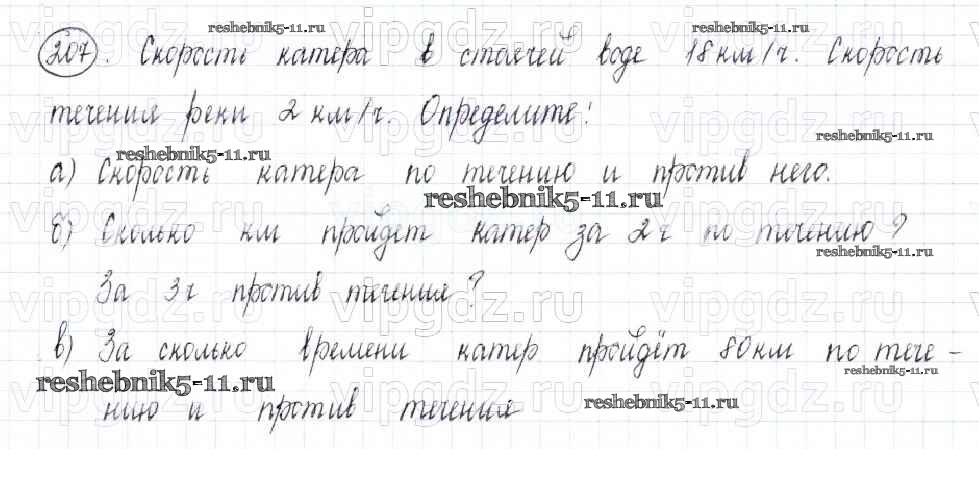 reshebnik5-11.ru
207. Скорость катера в стоячей воде 18 км/ч. Скорость
течения реки 2 км/ч. Определите:
reshebnik5-11.ru
reshebnik5-11.ru
а) Скорость катера по течению и против него.
reshebnik5-11.ru
б) Сколько км пройдет катер за 2 ч по течению?
reshebnik5-11.ru
За 3 ч против течения?
в) За сколько времени катер пройдёт 80 км по тече-
reshebnik5-11.ru
reshebnik5-11.ru
нию и против течения
reshebnik5-11.ru
vipgdz.ru vipgdz.ru vipgdz.ru